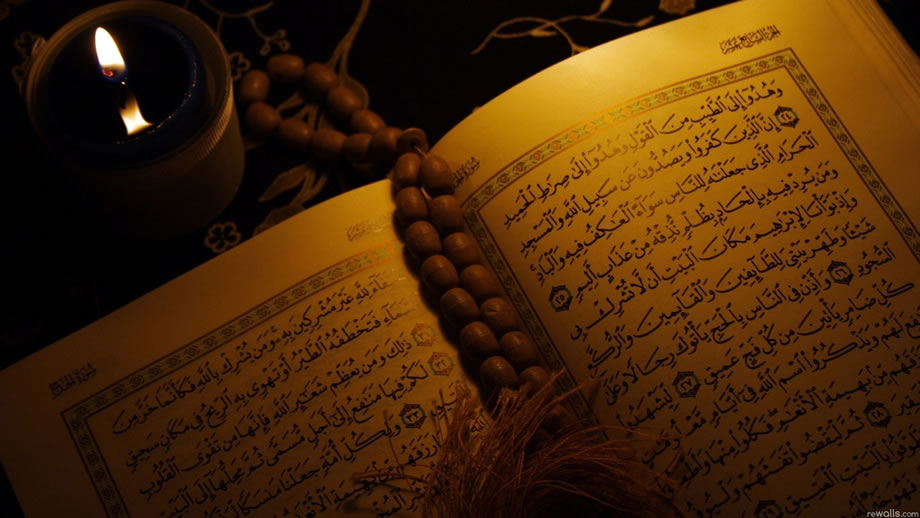 الجزء السابع عشر
وَهُدُوٓا۟ إِلَى ٱلطَّيِّبِ مِنَ ٱلْقَوْلِ وَهُدُوٓا۟ إِلَىٰ صِرَٰطِ ٱلْحَمِيدِ
٢٤ إِنَّ ٱلَّذِينَ كَفَرُوا۟ وَيَصُدُّونَ عَن سَبِيلِ ٱللَّهِ وَٱلْمَسْجِدِ
ٱلْحَرَامِ ٱلَّذِى جَعَلْنَٰهُ لِلنَّاسِ سَوَآءً ٱلْعَٰكِفُ فِيهِ وَٱلْبَادِ
وَمَن يُرِدْ فِيهِ بِإِلْحَادٍۭ بِظُلْمٍ نُّذِقْهُ مِنْ عَذَابٍ أَلِيمٍ ٢٥
وَإِذْ بَوَّأْنَا لِإِبْرَٰهِيمَ مَكَانَ ٱلْبَيْتِ أَن لَّا تُشْرِكْ بِى
شَيْـًٔا وَطَهِّرْ بَيْتِىَ لِلطَّآئِفِينَ وَٱلْقَآئِمِينَ وَٱلرُّكَّعِ
ٱلسُّجُودِ ٢٦ وَأَذِّن فِى ٱلنَّاسِ بِٱلْحَجِّ يَأْتُوكَ رِجَالًا وَعَلَىٰ
كُلِّ ضَامِرٍ يَأْتِينَ مِن كُلِّ فَجٍّ عَمِيقٍ ٢٧ لِّيَشْهَدُوا۟
لَهُمْ وَيَذْكُرُوا۟ ٱسْمَ ٱللَّهِ فِىٓ أَيَّامٍ
مِّنۢ بَهِيمَةِ ٱلْأَنْعَٰمِ فَكُلُوا۟ مِنْهَا
٢٨ ثُمَّ لْيَقْضُوا۟ تَفَثَهُمْ
بِٱلْبَيْتِ ٱلْعَتِيقِ
سورة الحج
لِلَّهِ غَيْرَ مُشْرِكِينَ بِهِۦ وَمَن يُشْرِكْ بِٱللَّهِ فَكَأَنَّمَا خَرَّ مِنَ
ٱلسَّمَآءِ فَتَخْطَفُهُ ٱلطَّيْرُ أَوْ تَهْوِى بِهِ ٱلرِّيحُ فِى مَكَانٍ سَحِيقٍ
٣١ ذَٰلِكَ وَمَن يُعَظِّمْ شَعَٰٓئِرَ ٱللَّهِ فَإِنَّهَا مِن تَقْوَى ٱلْقُلُوبِ
٣٢ لَكُمْ فِيهَا مَنَٰفِعُ إِلَىٰٓ أَجَلٍ مُّسَمًّى ثُمَّ مَحِلُّهَآ إِلَى ٱلْبَيْتِ
٣٣ وَلِكُلِّ أُمَّةٍ جَعَلْنَا مَنسَكًا
rewalls.com